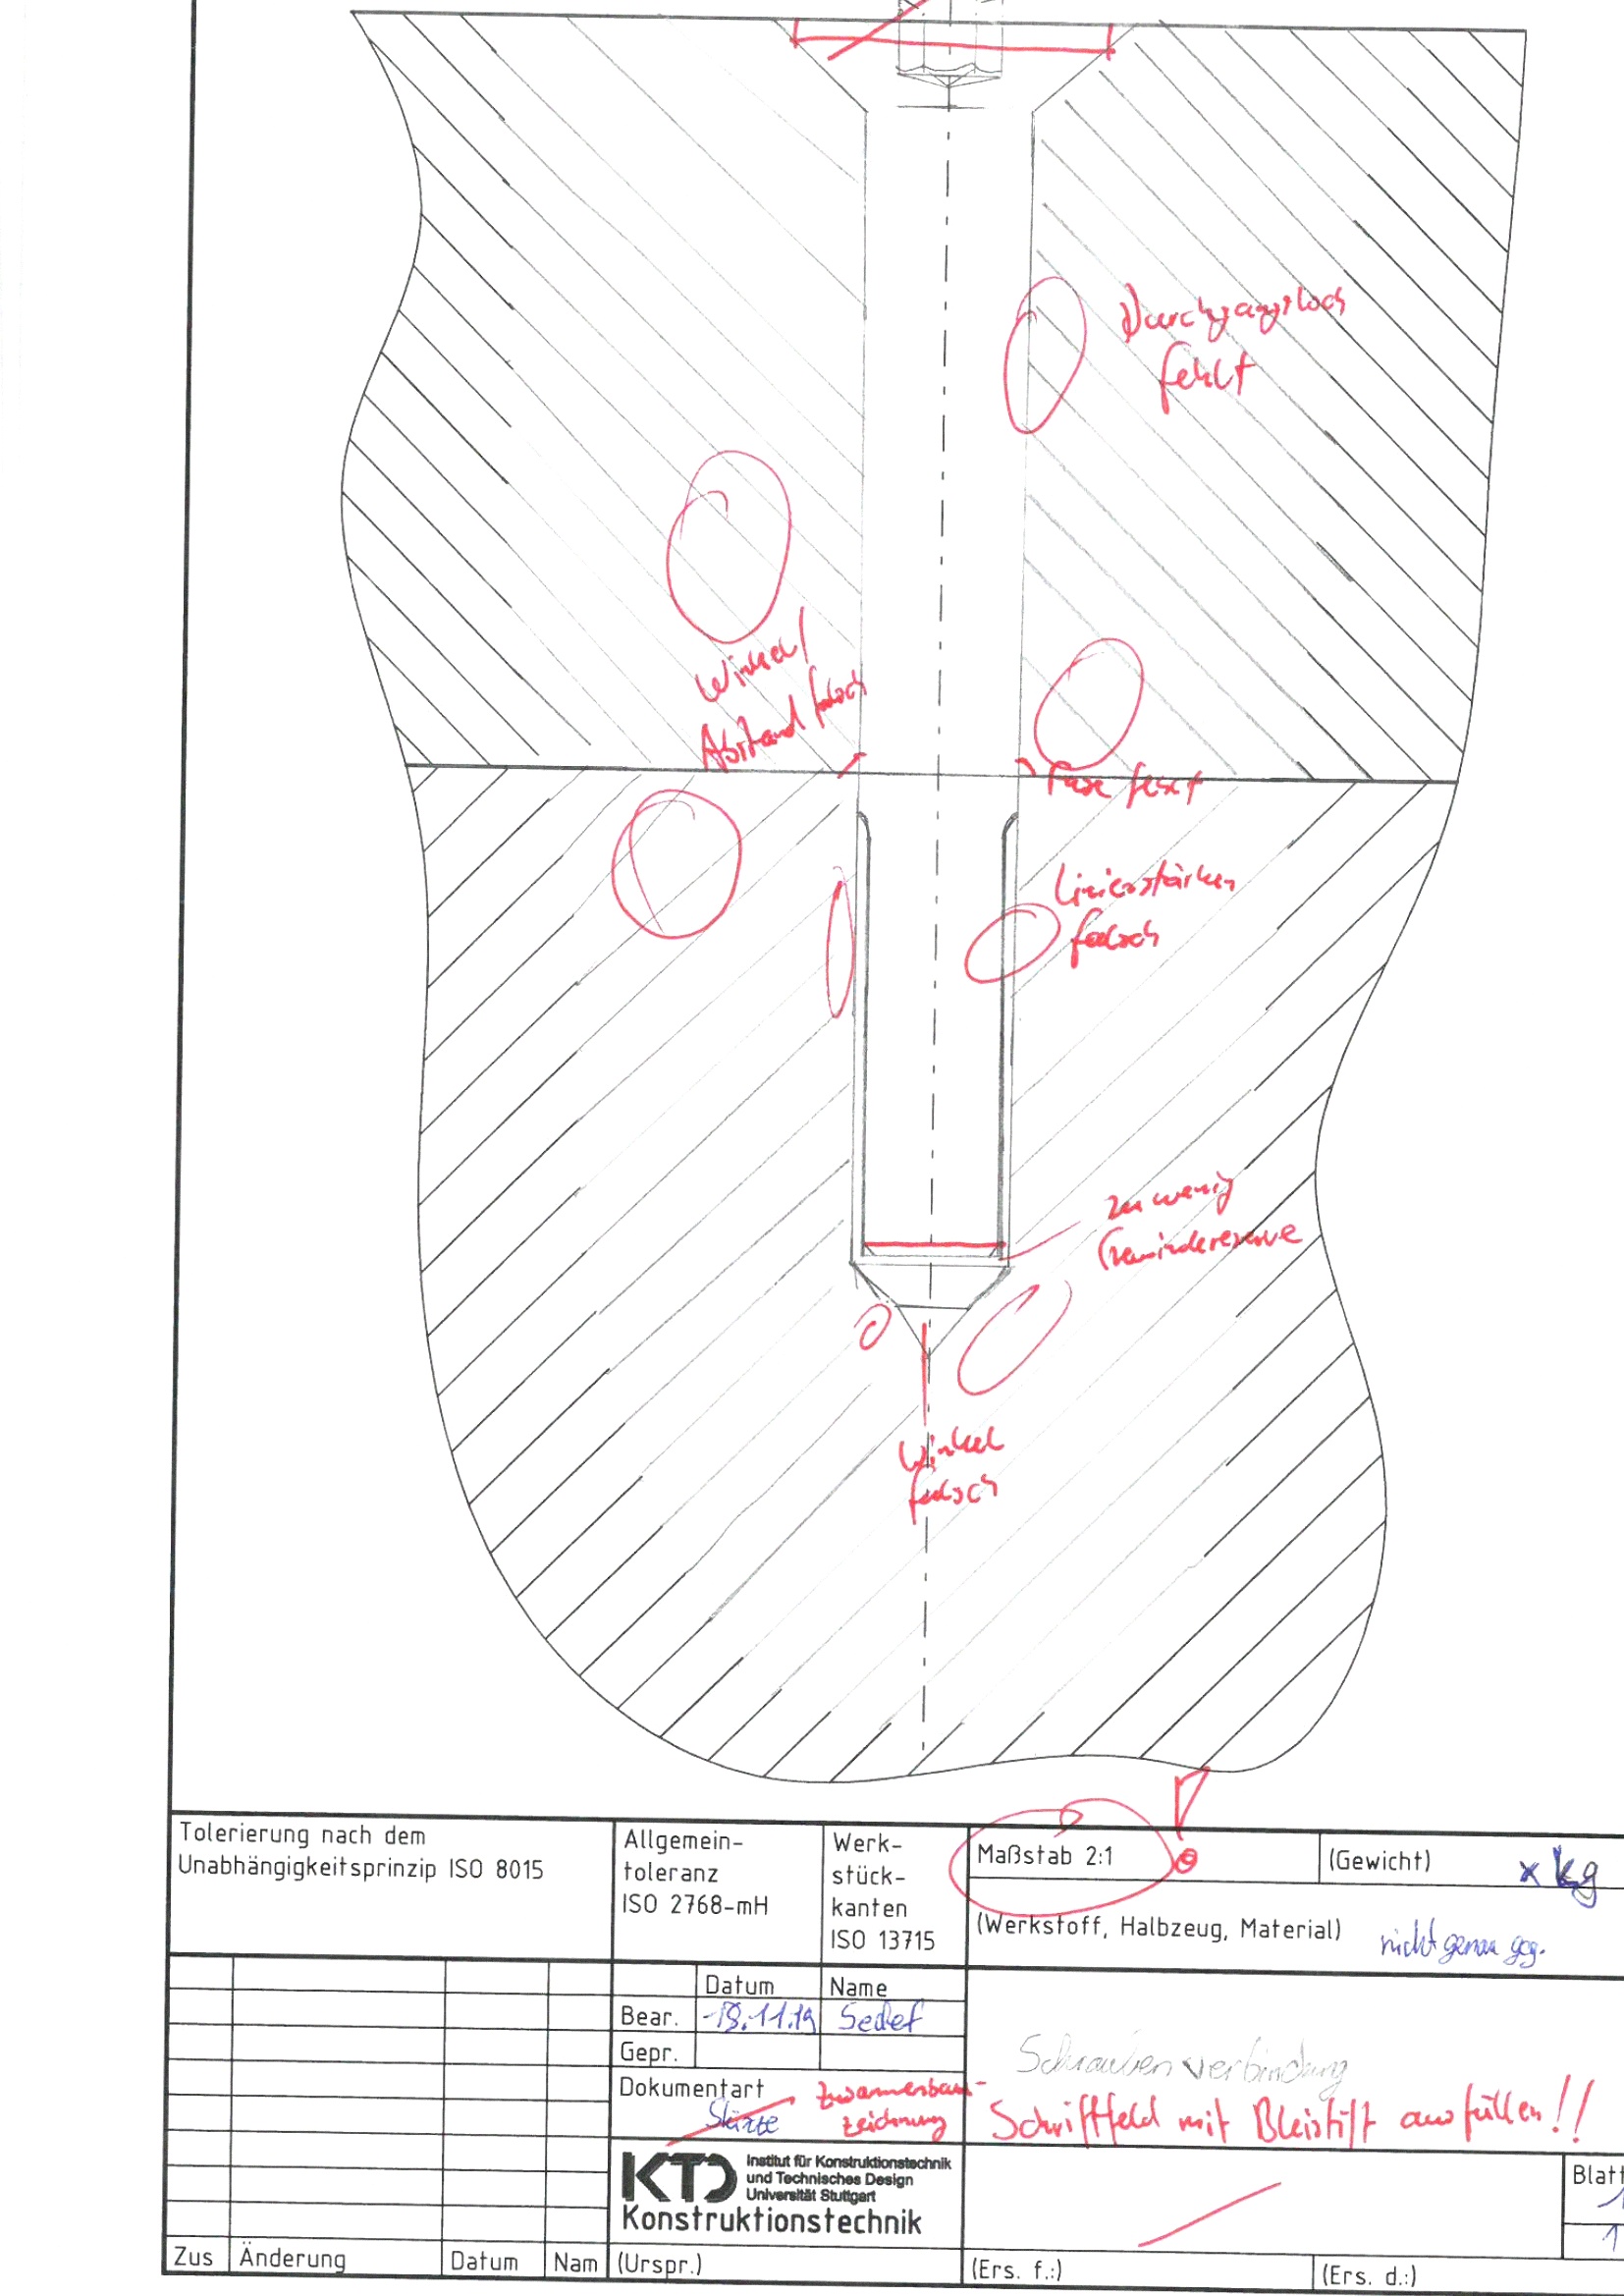 Durchgangsloch
fehlt
Winkel/
Abstand falsch
Fase fehlt
Linienstärken
falsch
zu wenig
Gewindereserve
Winkel
falsch
Tolerierung nach dem
Unabhängigkeitsprinzip ISO 8015
Allgemein-
toleranz
ISO 2768-mH
Werk-
stück-
kanten
ISO 13715
Maßstab 2:1
(Gewicht) x kg
(Werkstoff, Halbzeug, Material) nicht genau geg.
Datum Name
Bear. 18.11.19 Sedef
Gepr.
Dokumentart
Skizze
Zusammenbau-
zeichnung
Schraubenverbindung
Schriftfeld mit Bleistift ausfüllen!!
KTD Institut für Konstruktionstechnik
und Technisches Design
Universität Stuttgart
Konstruktionstechnik
Blatt
1
1
Zus Änderung Datum Nam (Urspr.) (Ers. f.:) (Ers. d.:)